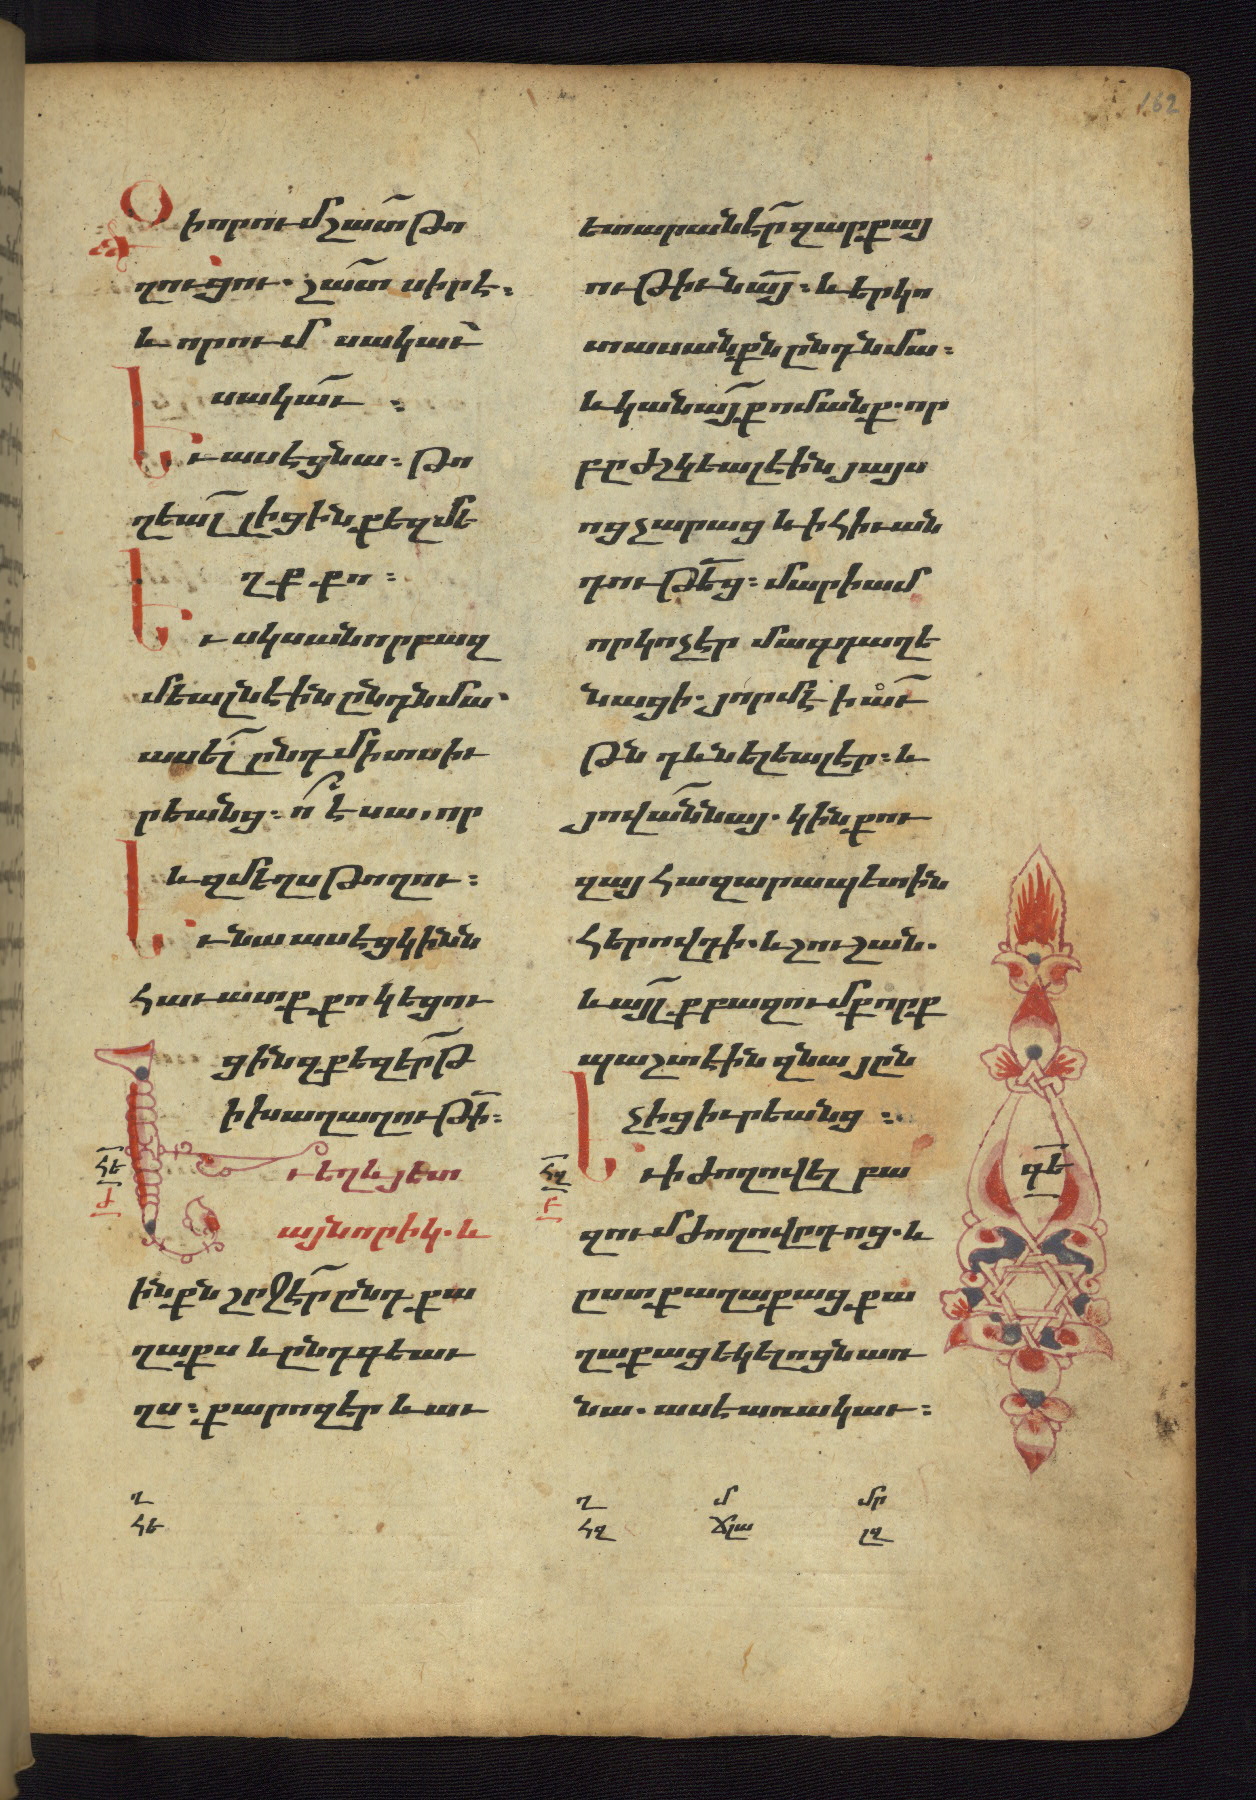 162
Զի որում շատ թո
ղուցու. շատ սիրէ:
և որում սակաւ
սակաւ:
Եւ ասէ ցնա: թո
ղեալ լիցին քեզ մե
ղք քո:
Եւ սկսան որ բազ
մեալն էին ընդ նմա.
ասել ընդ միտս իւ
րեանց: ո՞ է սա, որ
և զմեղս թողու:
Եւ նա ասէ ցկինն
հաւատք քո կեցու
ցին զքեզ երթ
ի խաղաղութի:
Եւ եղև յետ
այնորիկ. և
ինքն շրջէր ընդ քա
ղաքս և ընդ գեաւ
ղս: քարոզէր և աւ
հե
ժ
ետարանէր զարքայ
ութիւնայ: և երկո
տասանքն ընդ նմա:
և կանայք ոմանք. որ
բըժշկեալ էին յայս
ոց չարաց և ի հիւան
դութեց: մարիամ
որ կոչէր մագդաղե
նացի. յորմէ իաւ
թն դևն ելեալ էր: և
յովաննայ. կին քու
զայ հազարապետին
հերովդի. և շուշան.
և այլք բազումք որք
պաշտէին զնա յըն
չից իւրեանց:
Եւ ի ժողովել բա
զում ժողովըդոց. և
ըստ քաղաքաց քա
ղաքաց եկելոցն առ
նա. ասէ առակաւ:
հզ
բ
գե
ղ
հե
ղ մ մր
հզ ճլա լզ